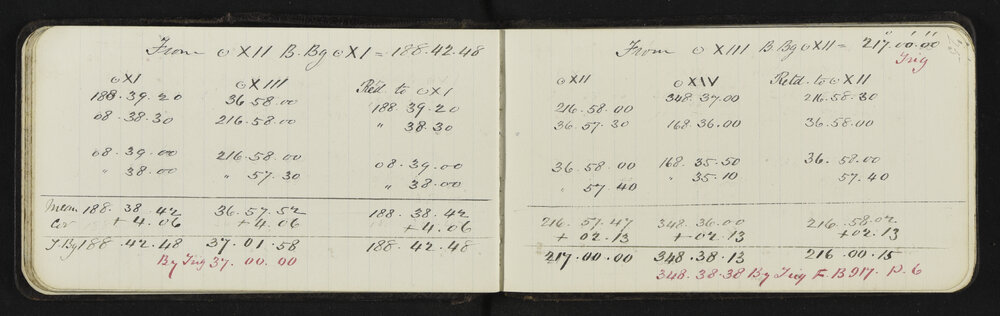 From ⊙XII B.Bg ⊙XI = 188.42.48
⊙XI ⊙XIII Retd. to ⊙XI
188.39.20 36.58.00 188.39.20
08.38.30 216.58.00 " 38.30
08.39.00 216.58.00 08.39.00
" 38.00 " 57.30 " 38.00
Mean 188.38.42 36.57.52 188.38.42
Cor +4.06 +4.06 +4.06
T.Bg 188.42.48 37.01.58 188.42.48
By Trig 37.00.00
From ⊙XIII B Bg ⊙XII = 217.00.00
Trig
⊙XII ⊙XIV Retd. to ⊙XII
216.58.00 348.37.00 216.58.30
36.57.30 168.36.00 36.58.00
36.58.00 168.35.50 36.58.00
" 57.40 " 35.10 57.40
216.57.47 348.36.00 216.58.02
+02.13 +02.13 +02.13
217.00.00 348.38.13 216.00.15
348.38.38 By Trig F.B 917. P.6